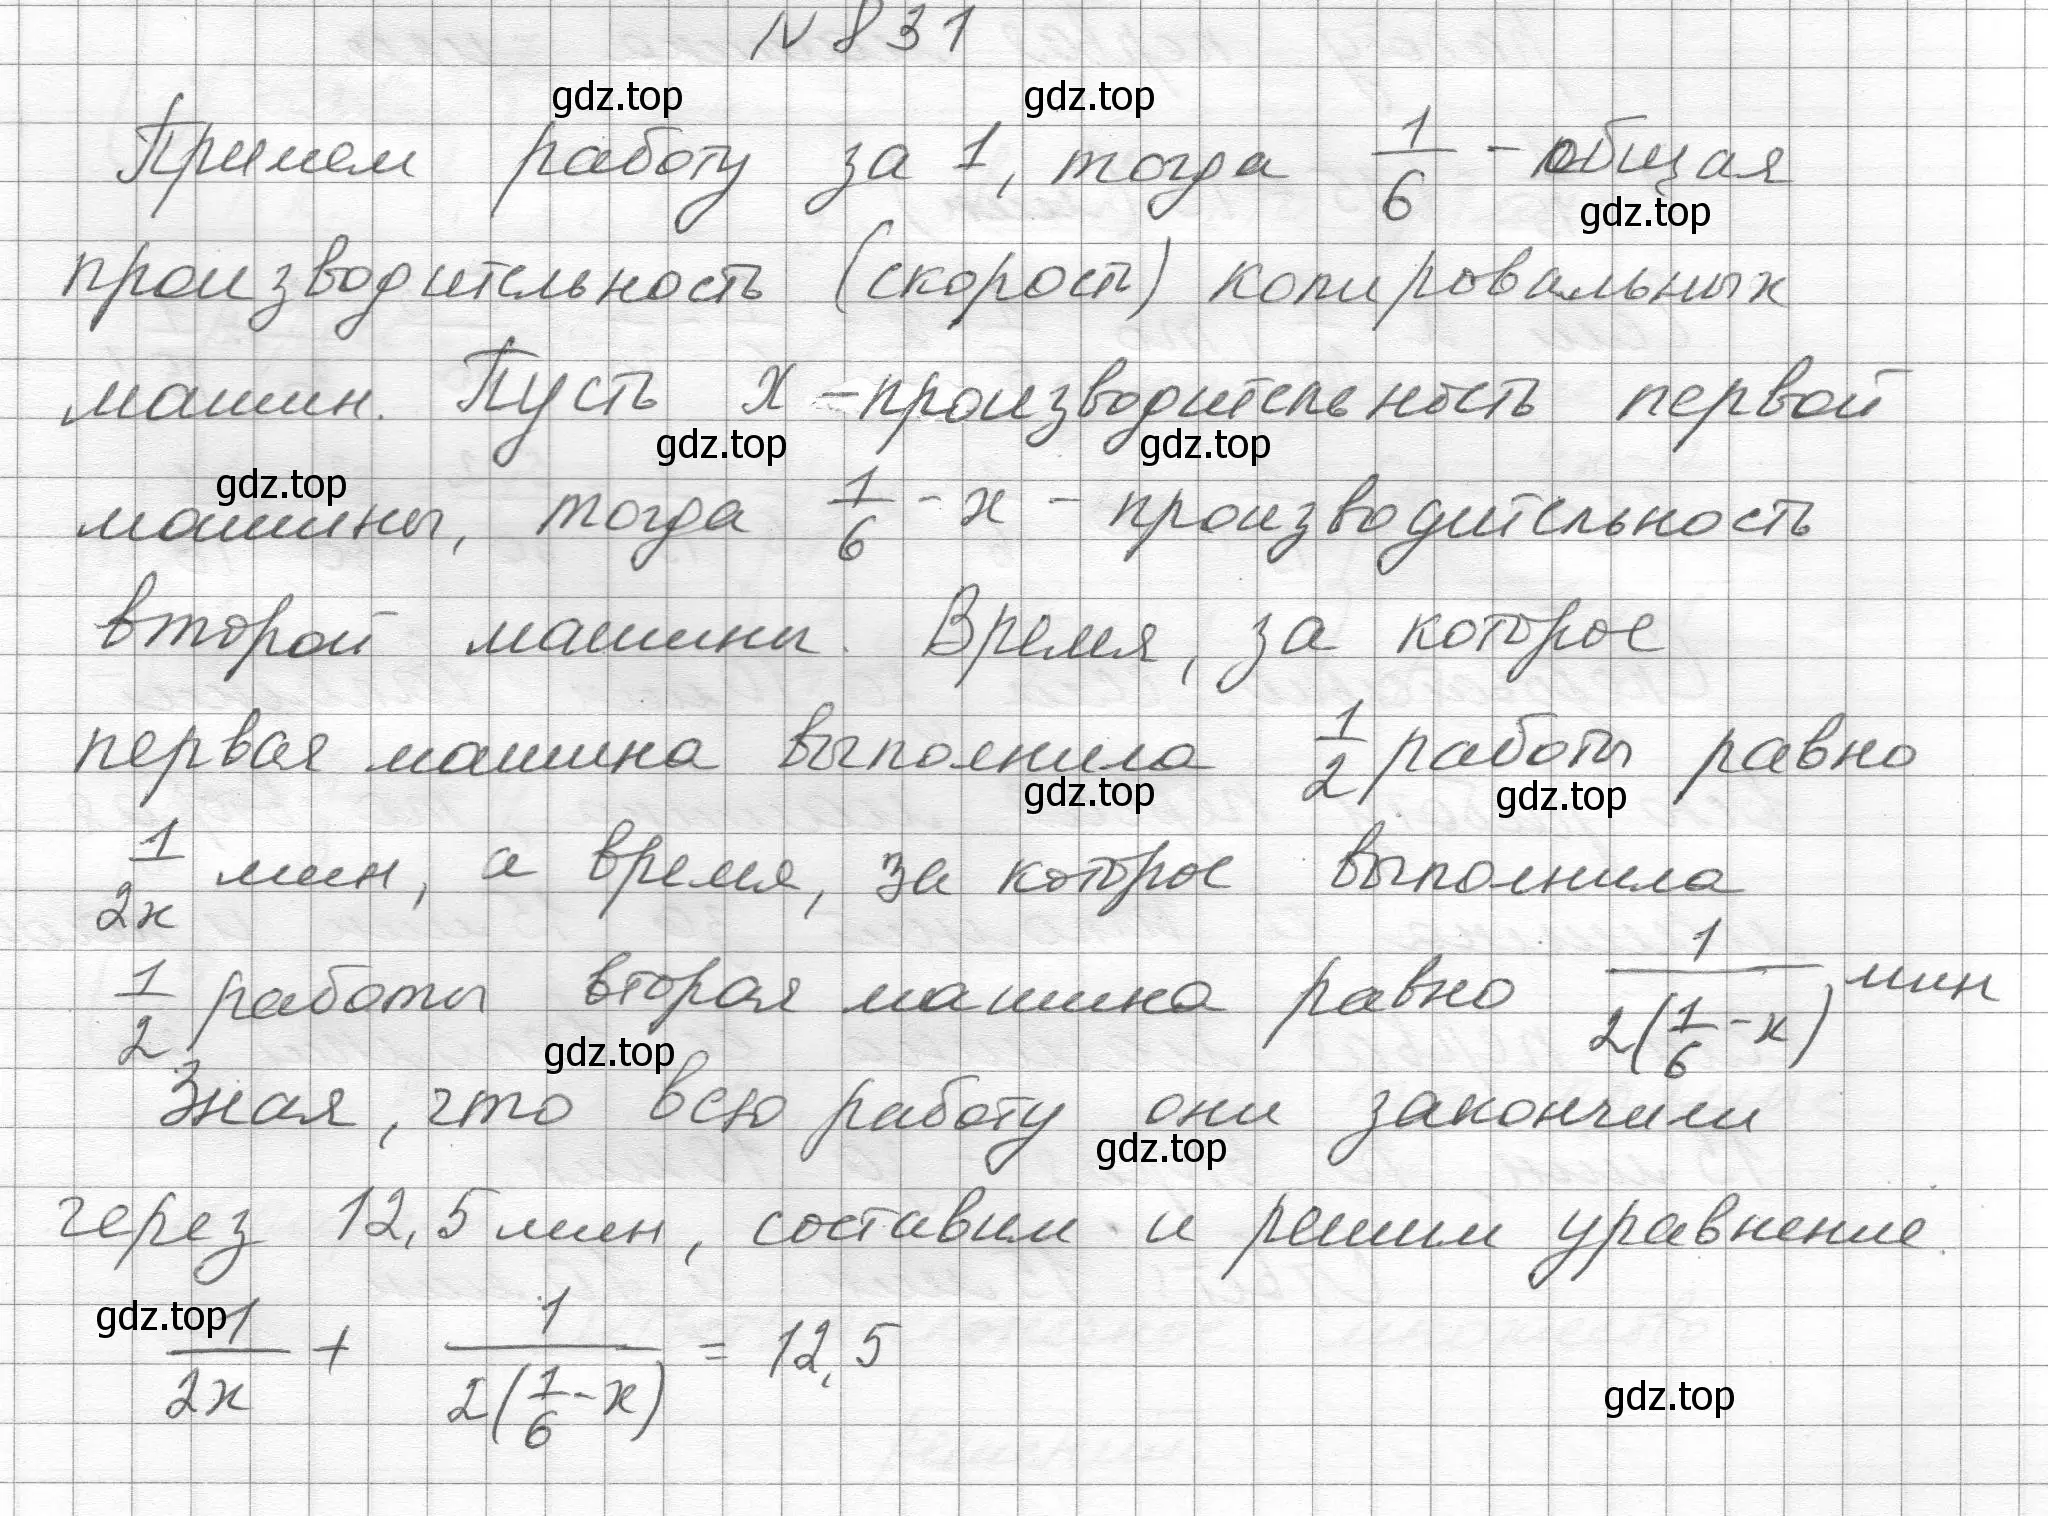 N 831
gdz.top gdz.top
Примем работу за 1, тогда 1/6 - общая
gdz.top
производительность (скорость) копировальных
машин. Пусть x - производительность первой
gdz.top gdz.top
gdz.top
машины, тогда 1/6 - x - производительность
второй машины. Время, за которое
первая машина выполнила 1/2 работы равно
gdz.top gdz.top
1/2x мин, а время, за которое выполнила
1/2 работы вторая машина равно 1/2(1/6 - x) мин
gdz.top
Зная, что всю работу они закончили
gdz.top
через 12,5 мин, составим и решим уравнение.
gdz.top
1/2x + 1/2(1/6 - x) = 12,5
gdz.top